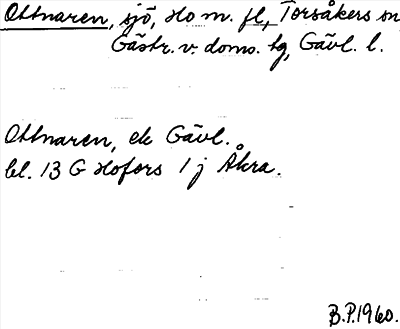 Ottnaren, sjö, Ho m. fl, Torsåkers sn
Gästr. v. doms. tg, Gävl. l.
Ottnaren, ek Gävl.
bl. 13 G Hofors 1 j Åkra.
B.P.1960.